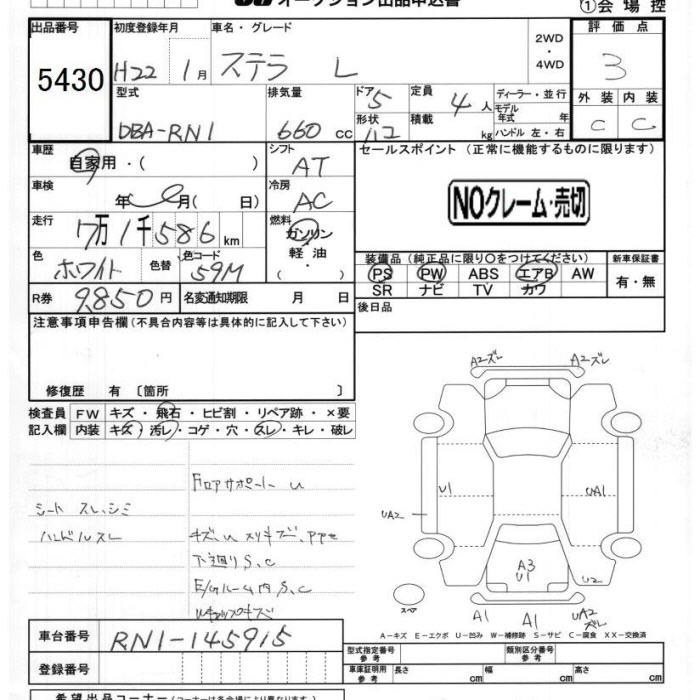 オークション出品申込書
①会場控
出品番号 5430
初度登録年月 H22 1月
車名・グレード ステラ L
2WD ・ 4WD
評価点 3
型式 DBA-RN1
排気量 660 cc
ドア 5
形状
定員 4 人
積載 kg
ディーラー・並行
モデル年式 年
ハンドル 左・右
外装 内装
C C
車歴 自家用・( )
シフト AT
セールスポイント (正常に機能するものに限ります)
車検 年 月( 日)
冷房 AC
NOクレーム・売切
走行 7万1千586 km
燃料 ガソリン 軽油 ( )
色 ホワイト 色替 色コード 59M
装備品 (純正品に限り○をつけてください) 新車保証書
PS PW ABS エアB AW 有・無
SR ナビ TV カワ
R券 9,850円 名変通知期限 月 日
後日品
注意事項申告欄 (不具合内容等は具体的に記入して下さい)
修復歴 有 〔箇所 〕
検査員 FW キズ・飛石・ヒビ割・リペア跡・×要
記入欄 内装 キズ・汚レ・コゲ・穴・スレ・キレ・破レ
A2ズレ A2ズレ
フロアサポート U
シート スレ、シミ
ハンドルスレ
下廻り S、C
E/gルーム内 S、C
U1 UA1
UA2
A3
U1
U2
スペア
A1 A1 UA2
ズレ
A-キズ E-エクボ U-凹み W-補修跡 S-サビ C-腐食 XX-交換済
車台番号 RN1-145915
登録番号
型式指定番号 参考 類別区分番号 参考
車庫証明用 参考 長さ cm 幅 cm 高さ cm
希望出品コーナー